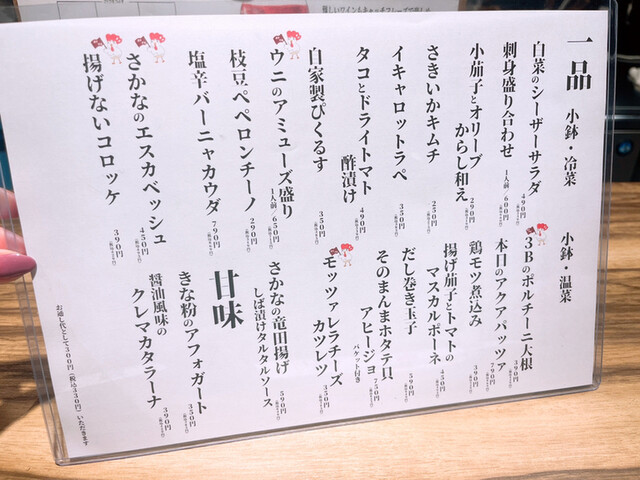 一品
小鉢・冷菜
白菜のシーザーサラダ
490円
刺身盛り合わせ
1人前/600円
小茄子とオリーブ
からし和え
290円
さきいかキムチ
250円
イキャロットラペ
350円
タコとドライトマト
酢漬け
490円
自家製ぴくるす
350円
ウニのアミューズ盛り
1人前/650円
枝豆ペペロンチーノ
290円
塩辛バーニャカウダ
790円
さかなのエスカベッシュ
450円
揚げないコロッケ
390円
小鉢・温菜
3Bのポルチーニ大根
390円
本日のアクアパッツァ
790円
鶏モツ煮込み
390円
揚げ茄子とトマトの
マスカルポーネ
450円
だし巻き玉子
590円
そのまんまホタテ貝
アヒージョ
バケット付き
750円
モッツァレラチーズ
カツレツ
350円
さかなの竜田揚げ
しば漬けタルタルソース
590円
甘味
きな粉のアフォガート
350円
醤油風味の
クレマカタラーナ
390円
お通し代として300円(税込330円)いただきます